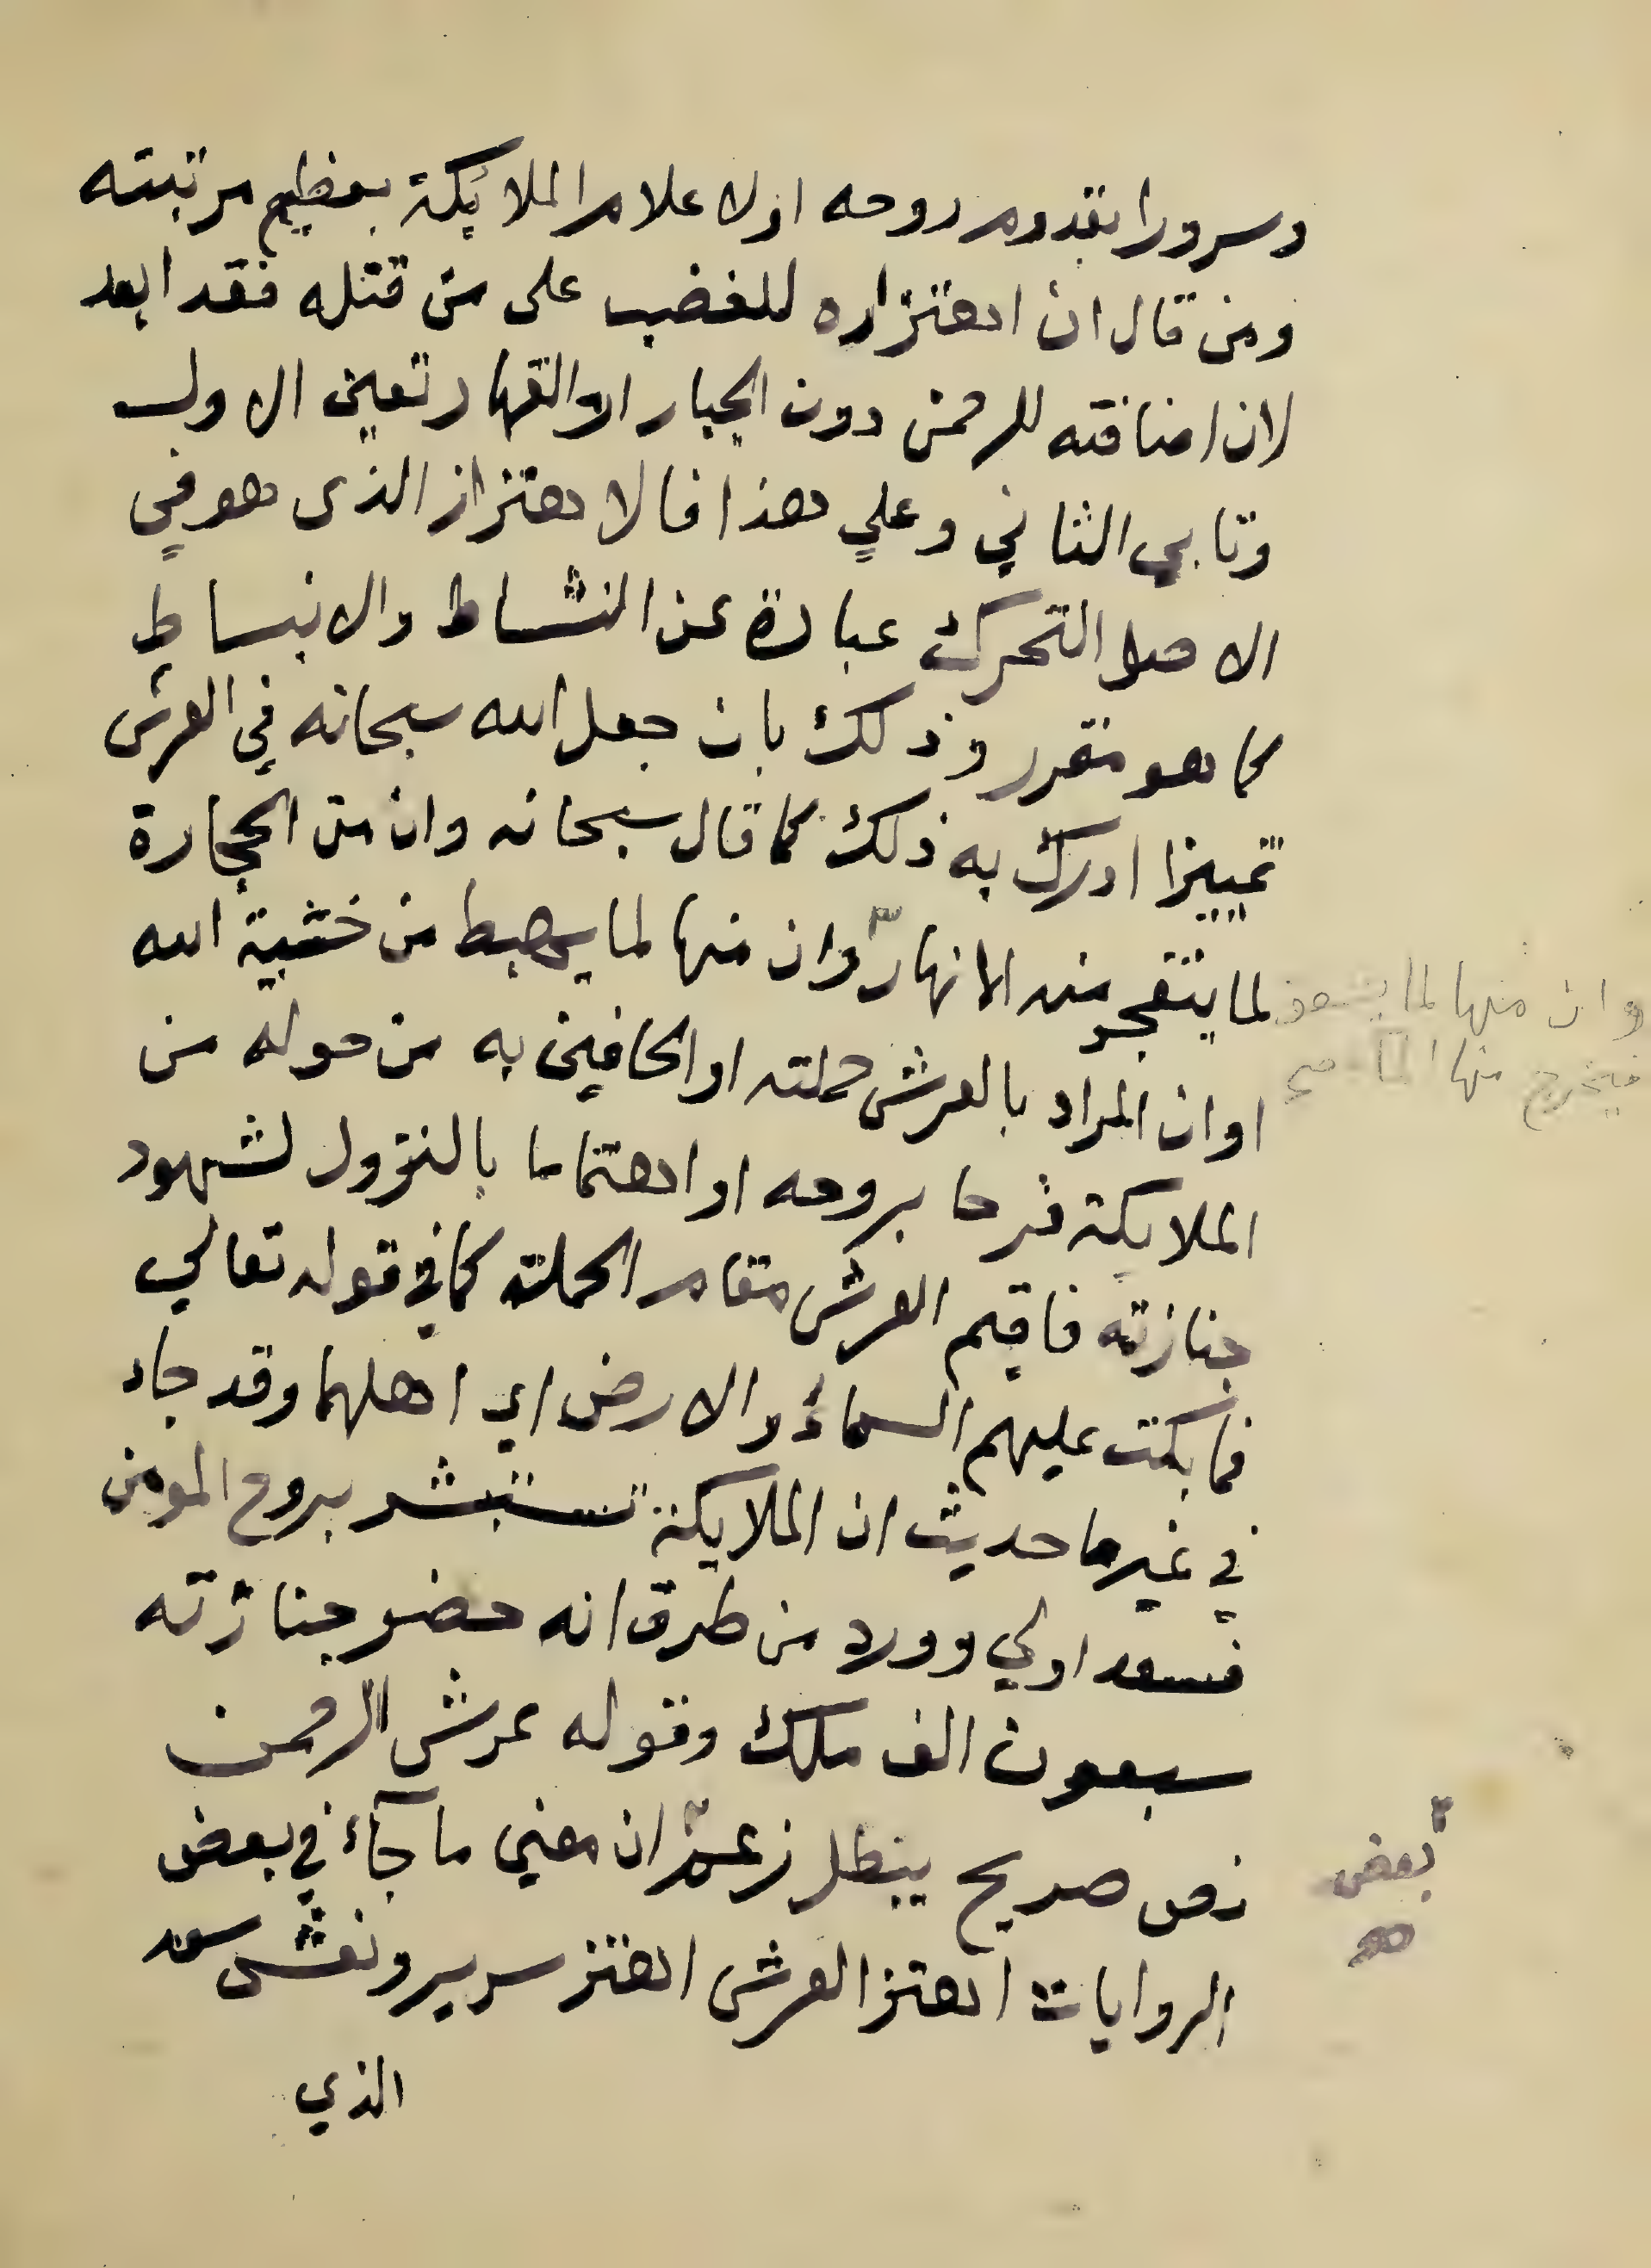 وسرورا بقدوم روحه اولا علام الملائكة بعظيم مرتبته
ومن قال ان اهتزاره للغضب على من قتله فقد ابعد
لان اضافته للرحمن دون الجبار او القهار تعين الاول
وتابى الثاني وعلي هذا فالاهتزاز الذى هو في
الاصل التحرك عبارة عن النشاط والانبساط
كما هو مقرر وذلك بان جعل الله سبحانه في العرش
تمييزا ادرك به ذلك كما قال سبحانه وان من الحجارة
لما يتفجر منه الانهار وان منها لما يهبط من خشية الله
وان منها لما يشقق
فيخرج منها الماء صح
او ان المراد بالعرش حملته او الحافين به من حوله من
الملايكة فرحا بروحه او اهتماما بالنزول لشهود
جنازته فاقيم العرش مقام الحملة كما في قوله تعالي
فما بكت عليهم السماء والارض اي اهلهما وقد جاء
في غير ما حديث ان الملايكة تستبشر بروح المومن
فسعد اولي وورد من طرق انه حضر جنازته
سبعون الف ملك وقوله عرش الرحمن
نص صريح يبطل زعم ان معني ما جآء في بعض
بعض
الروايات اهتز العرش اهتز سرير ونعش سعد
الذي